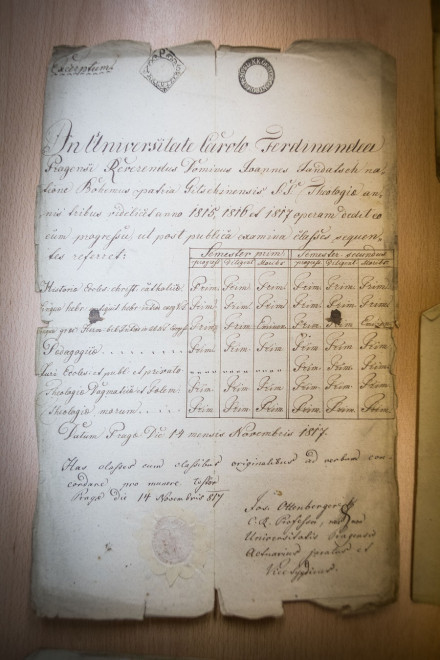 Excerptum
In Universitate Carolo Ferdinandea
Pragensi Reverendus Dominus Joannes na-
tione Bohemus patria Gitschinensis S.S. Theologiæ an-
nis tribus videlicet anno 1815, 1816 et 1817 operam dedit eo
cum progressu, ut post publica examina classes sequen-
tes referret:
Semester prim. Semester secundus
progress. Diligent. Moribo progress. Diligent. Moribo
Historia Eccles. christ. catholicæ Prim Prim Prim Prim Prim Prim
Lingua hebr. hebr. Prim Prim Prim Prim Prim Prim
Lingua græc. Prim Prim Eminens Prim Prim Emin
Pedagogiæ Prim Prim Prim Prim Prim Prim
Juri Eccles. et publ. et privato Prim Prim Prim
Theologiæ Dogmaticæ et Prim Prim Prim Prim Prim Prim
Theologiæ morum Prim Prim Prim Prim Prim Prim
Datum Pragæ Die 14 mensis Novembris 1817.
Has classes cum classibus originalibus ad verbum con-
cordare pro munere testor
Pragæ die 14 Novembris 817
Jos. Ottenberger
C. R. Professor,
Universitatis Pragensis
Actuarius juratus et
Vice Syndicus